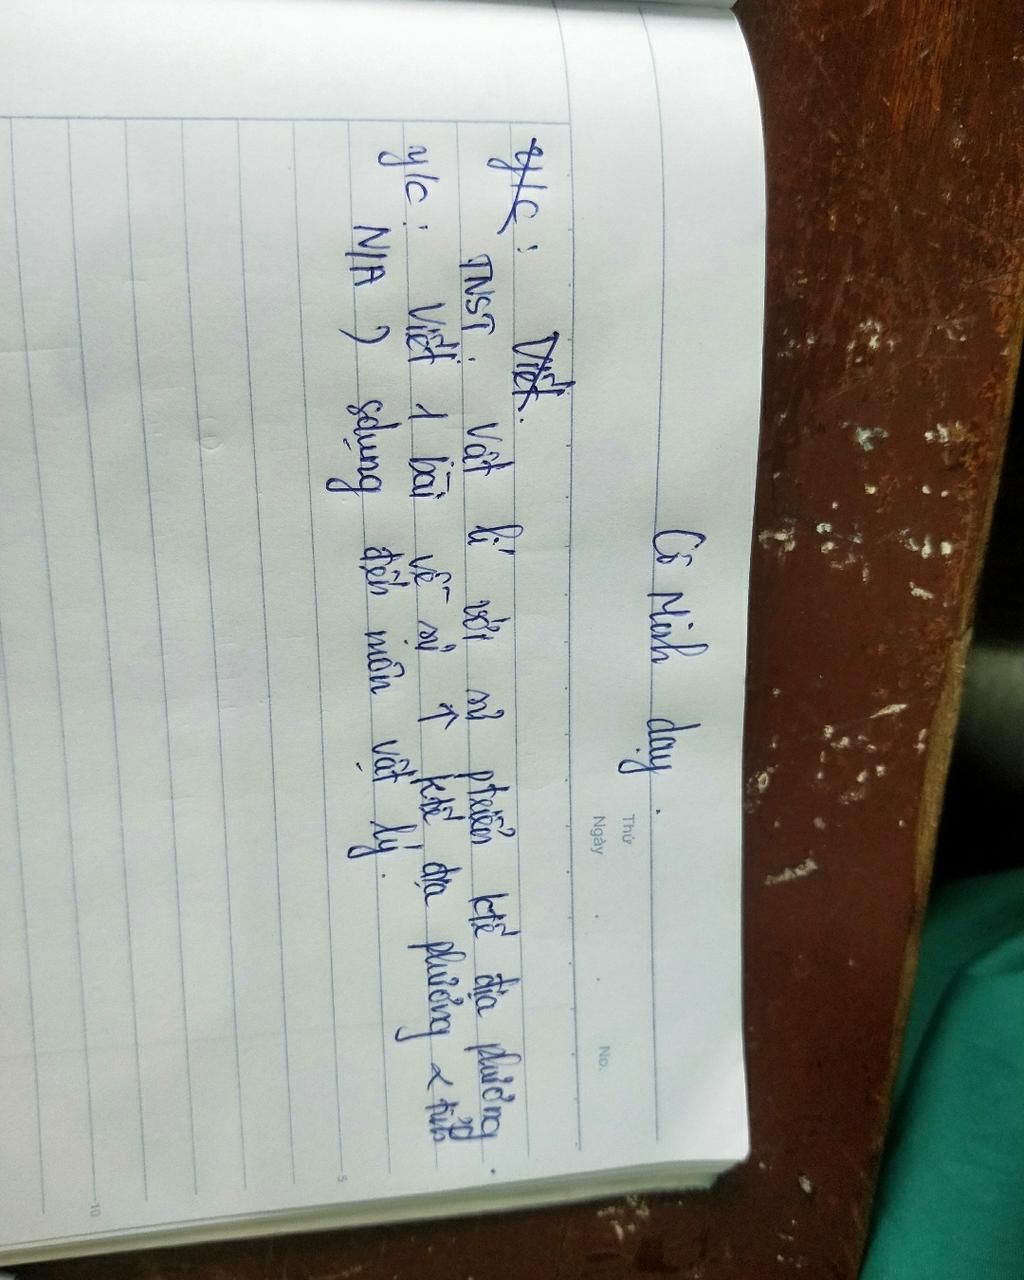 Cô Minh dạy.
Thứ
Ngày
No.
y/c: Viết.
TNST: Vật lí với sự ptriển ktế địa phương.
y/c: Viết 1 bài về sự ↑ ktế địa phương < tỉnh
N/A ) sdụng đến môn vật lý.
5
10